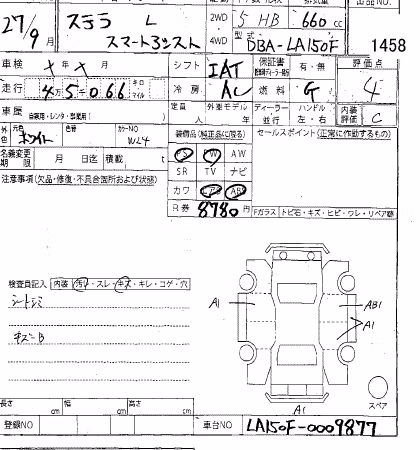 27/9月 ステラ L スマートアシスト 2WD 4WD 5 HB 660 cc DBA-LA150F 出品NO. 1458
車検 X 年 X 月 シフト IAT 保証書 有・無 評価点 4
走行 4万5千066 キロ マイル 冷房 AC 燃料 G
車歴 自家用・レンタ・事業用 定員 人 外車モデル 年 ディーラー 並行 ハンドル 左・右 内装評価 C
外色 ホワイト 色替 カラーNO W24
名義変更期限 月 日迄 積載 t
装備品(純正品に限る) セールスポイント(正常に作動するもの)
PS PW AW
SR TV ナビ
カワ エアB ABS
R券 8780円
注意事項(欠品・修復・不具合箇所および状態)
Fガラス トビ石・キズ・ヒビ・ワレ・リペア跡
検査員記入 内装 汚れ・スレ・キズ・キレ・コゲ・穴
シートシミ
キズ-B
A1
AB1
A1
A1
スペア
長さ cm 幅 cm 高さ cm
登録NO 車台NO LA150F-0009877